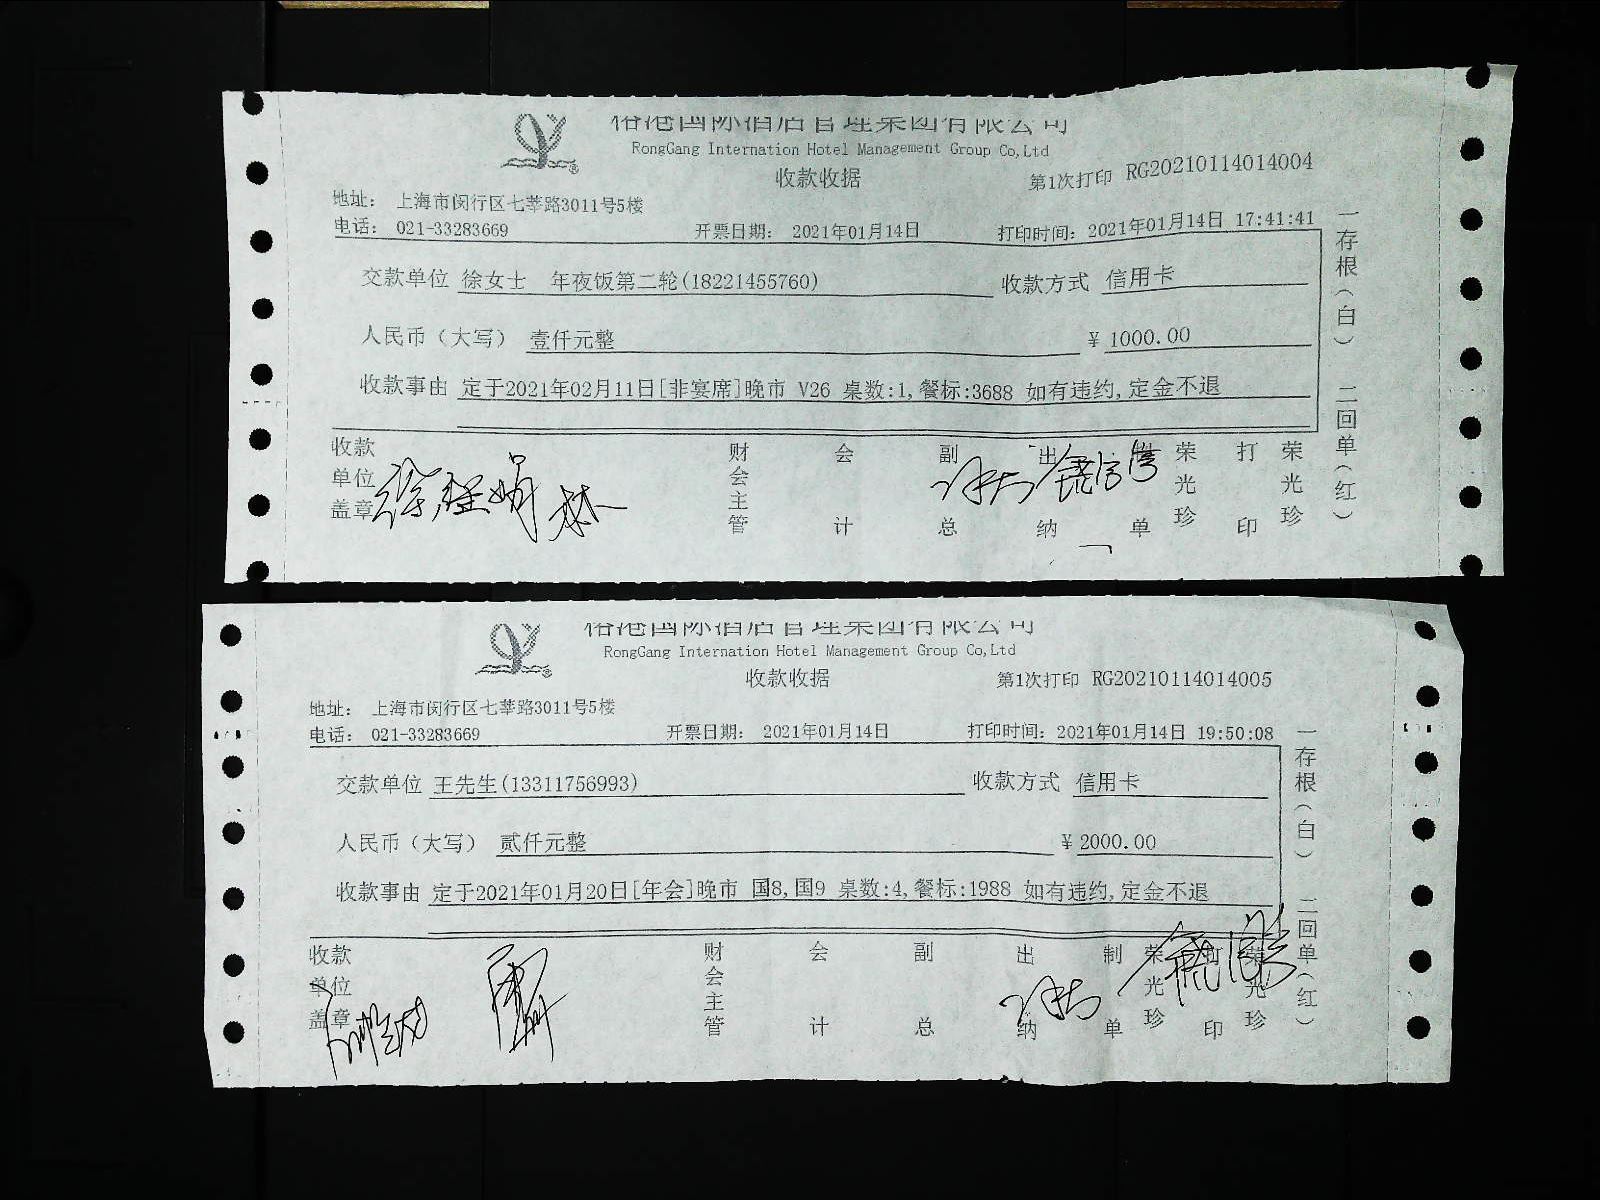 榕港国际酒店管理集团有限公司
RongGang Internation Hotel Management Group Co,Ltd
收款收据
第1次打印 RG20210114014004
地址： 上海市闵行区七莘路3011号5楼
电话： 021-33283669 开票日期： 2021年01月14日 打印时间： 2021年01月14日 17:41:41
交款单位 徐女士 年夜饭第二轮(18221455760) 收款方式 信用卡
人民币（大写） 壹仟元整 ￥ 1000.00
收款事由 定于2021年02月11日[非宴席]晚市 V26 桌数:1,餐标:3688 如有违约,定金不退
收款单位盖章 财会主管 会计 副总 出纳 制单 荣光珍 打印 荣光珍
一存根（白） 二回单（红）
榕港国际酒店管理集团有限公司
RongGang Internation Hotel Management Group Co,Ltd
收款收据
第1次打印 RG20210114014005
地址： 上海市闵行区七莘路3011号5楼
电话： 021-33283669 开票日期： 2021年01月14日 打印时间： 2021年01月14日 19:50:08
交款单位 王先生(13311756993) 收款方式 信用卡
人民币（大写） 贰仟元整 ￥ 2000.00
收款事由 定于2021年01月20日[年会]晚市 国8,国9 桌数:4,餐标:1988 如有违约,定金不退
收款单位盖章 财会主管 会计 副总 出纳 制单 荣光珍 打印 荣光珍
一存根（白） 二回单（红）